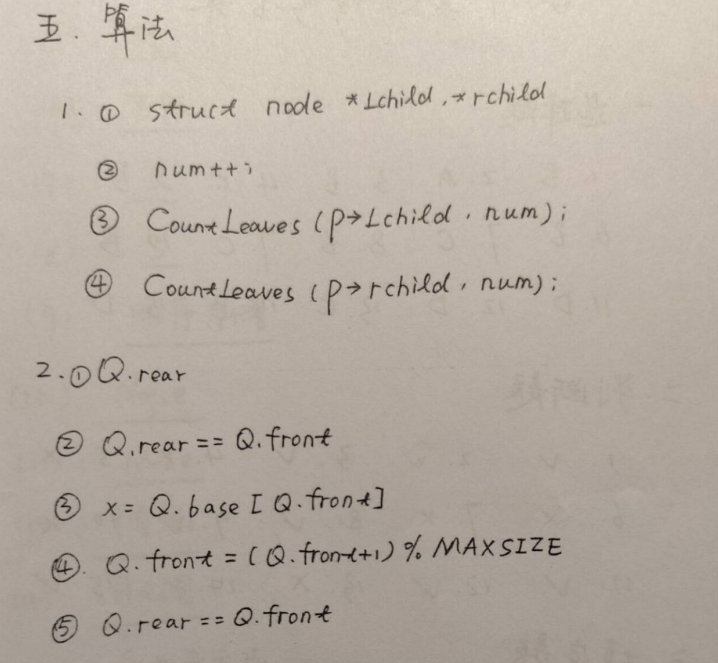 五. 算法
1. ① struct node *Lchild, *rchild
② num++;
③ CountLeaves (p→Lchild, num);
④ CountLeaves (p→rchild, num);
2. ① Q.rear
② Q.rear == Q.front
③ x = Q.base [Q.front]
④. Q.front = (Q.front+1) % MAXSIZE
⑤ Q.rear == Q.front